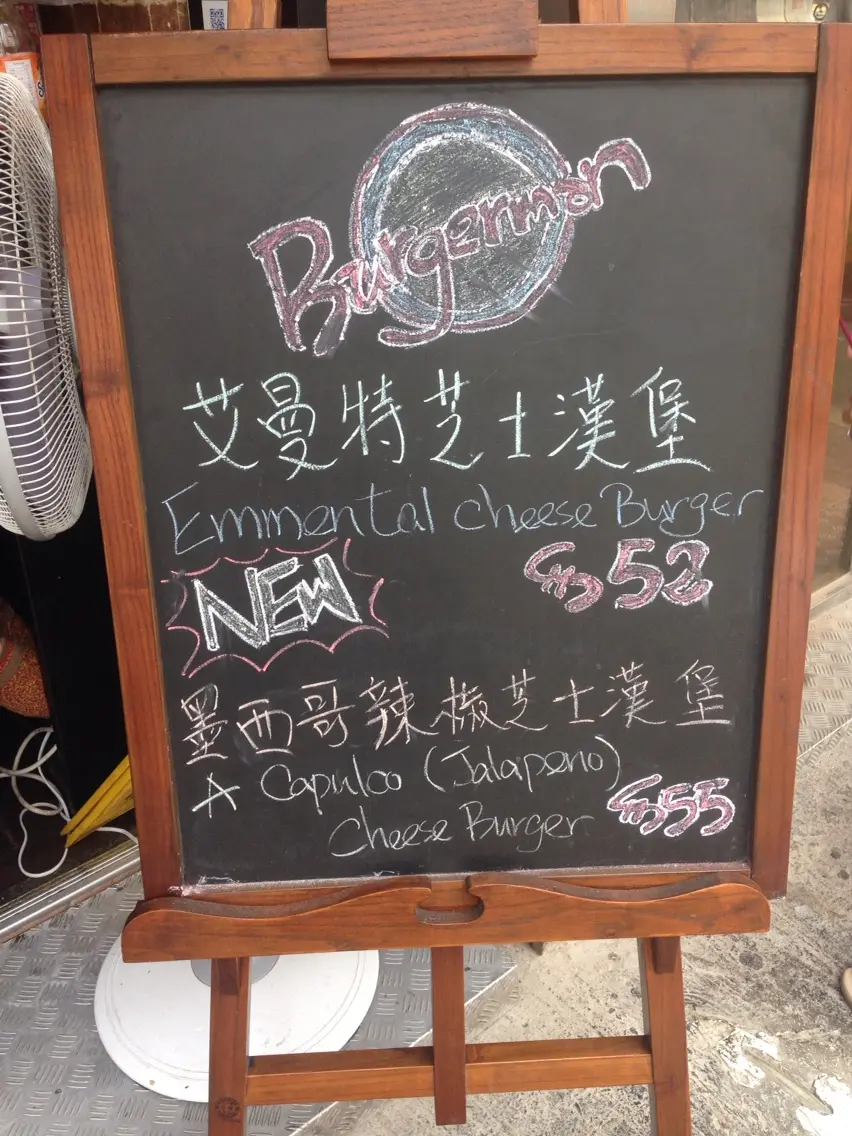 Burgerman
艾曼特芝士漢堡
Emmental cheese Burger
NEW
52
墨西哥辣椒芝士漢堡
A Capulco (Jalapeno)
Cheese Burger
55